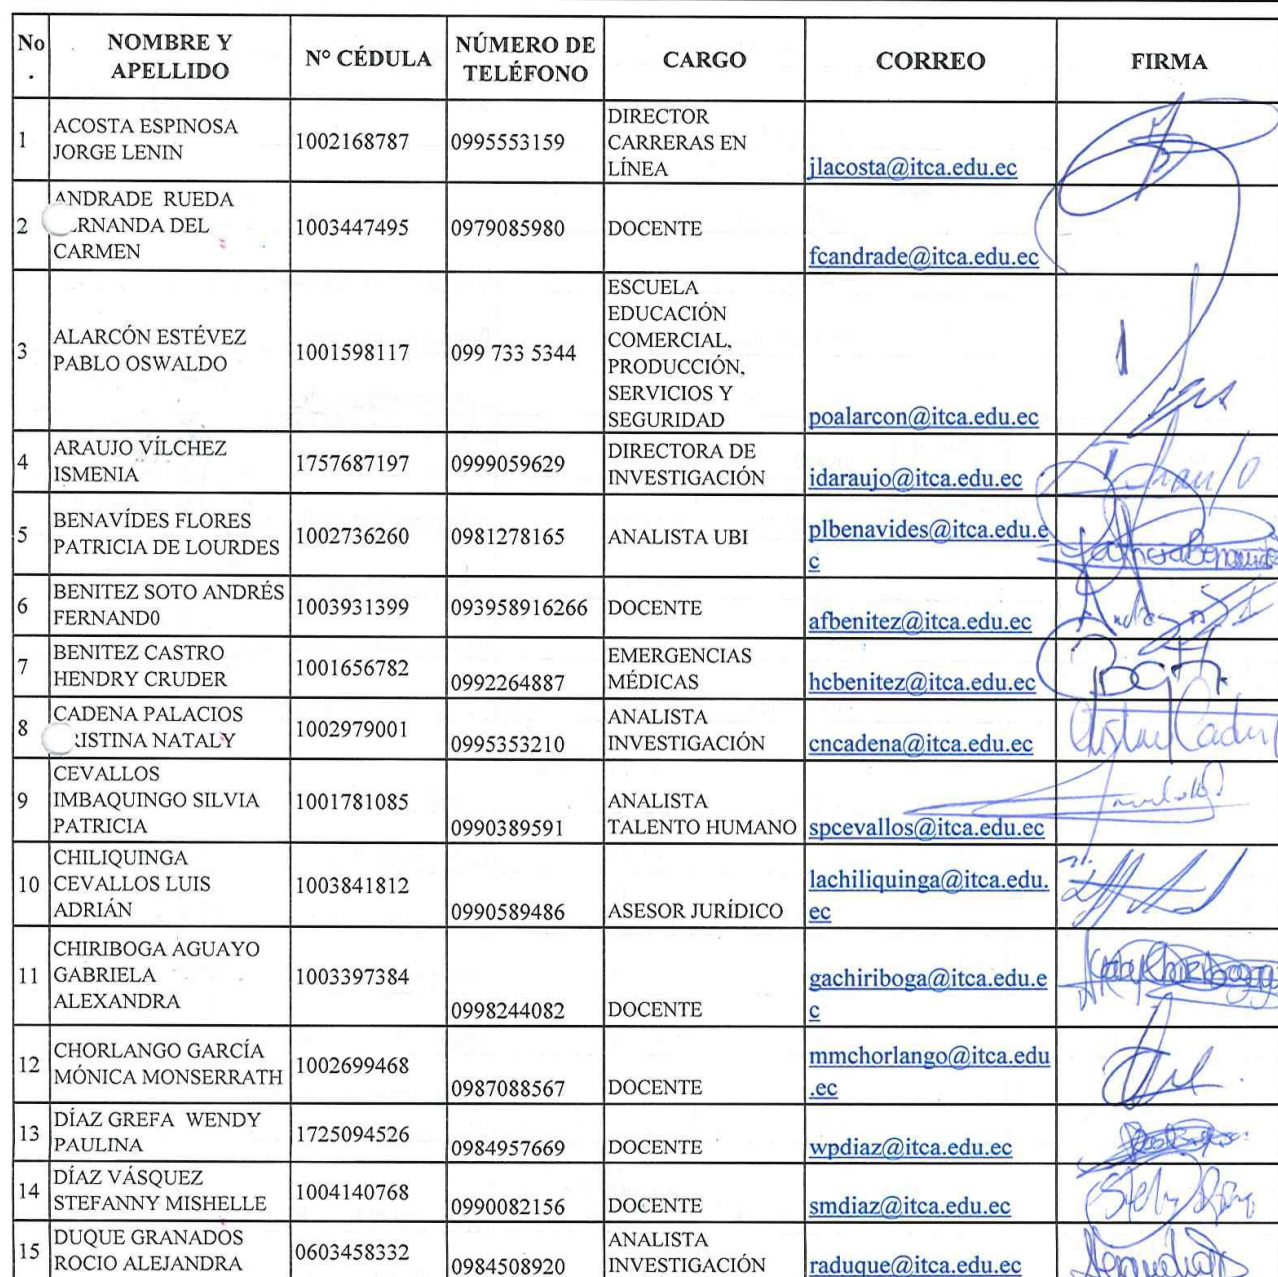 No. NOMBRE Y APELLIDO N° CÉDULA NÚMERO DE TELÉFONO CARGO CORREO FIRMA
1 ACOSTA ESPINOSA JORGE LENIN 1002168787 0995553159 DIRECTOR CARRERAS EN LÍNEA jlacosta@itca.edu.ec
2 ANDRADE RUEDA DEL CARMEN 1003447495 0979085980 DOCENTE fcandrade@itca.edu.ec
3 ALARCÓN ESTÉVEZ PABLO OSWALDO 1001598117 099 733 5344 ESCUELA EDUCACIÓN COMERCIAL, PRODUCCIÓN, SERVICIOS Y SEGURIDAD poalarcon@itca.edu.ec
4 ARAUJO VÍLCHEZ ISMENIA 1757687197 0999059629 DIRECTORA DE INVESTIGACIÓN idaraujo@itca.edu.ec
5 BENAVÍDES FLORES PATRICIA DE LOURDES 1002736260 0981278165 ANALISTA UBI plbenavides@itca.edu.ec
6 BENITEZ SOTO ANDRÉS FERNAND0 1003931399 093958916266 DOCENTE afbenitez@itca.edu.ec
7 BENITEZ CASTRO HENDRY CRUDER 1001656782 0992264887 EMERGENCIAS MÉDICAS hcbenitez@itca.edu.ec
8 CADENA PALACIOS NATALY 1002979001 0995353210 ANALISTA INVESTIGACIÓN cncadena@itca.edu.ec
9 CEVALLOS IMBAQUINGO SILVIA PATRICIA 1001781085 0990389591 ANALISTA TALENTO HUMANO spcevallos@itca.edu.ec
10 CHILIQUINGA CEVALLOS LUIS ADRIÁN 1003841812 0990589486 ASESOR JURÍDICO lachiliquinga@itca.edu.ec
11 CHIRIBOGA AGUAYO GABRIELA ALEXANDRA 1003397384 0998244082 DOCENTE gachiriboga@itca.edu.ec
12 CHORLANGO GARCÍA MÓNICA MONSERRATH 1002699468 0987088567 DOCENTE mmchorlango@itca.edu.ec
13 DÍAZ GREFA WENDY PAULINA 1725094526 0984957669 DOCENTE wpdiaz@itca.edu.ec
14 DÍAZ VÁSQUEZ STEFANNY MISHELLE 1004140768 0990082156 DOCENTE smdiaz@itca.edu.ec
15 DUQUE GRANADOS ROCIO ALEJANDRA 0603458332 0984508920 ANALISTA INVESTIGACIÓN raduque@itca.edu.ec